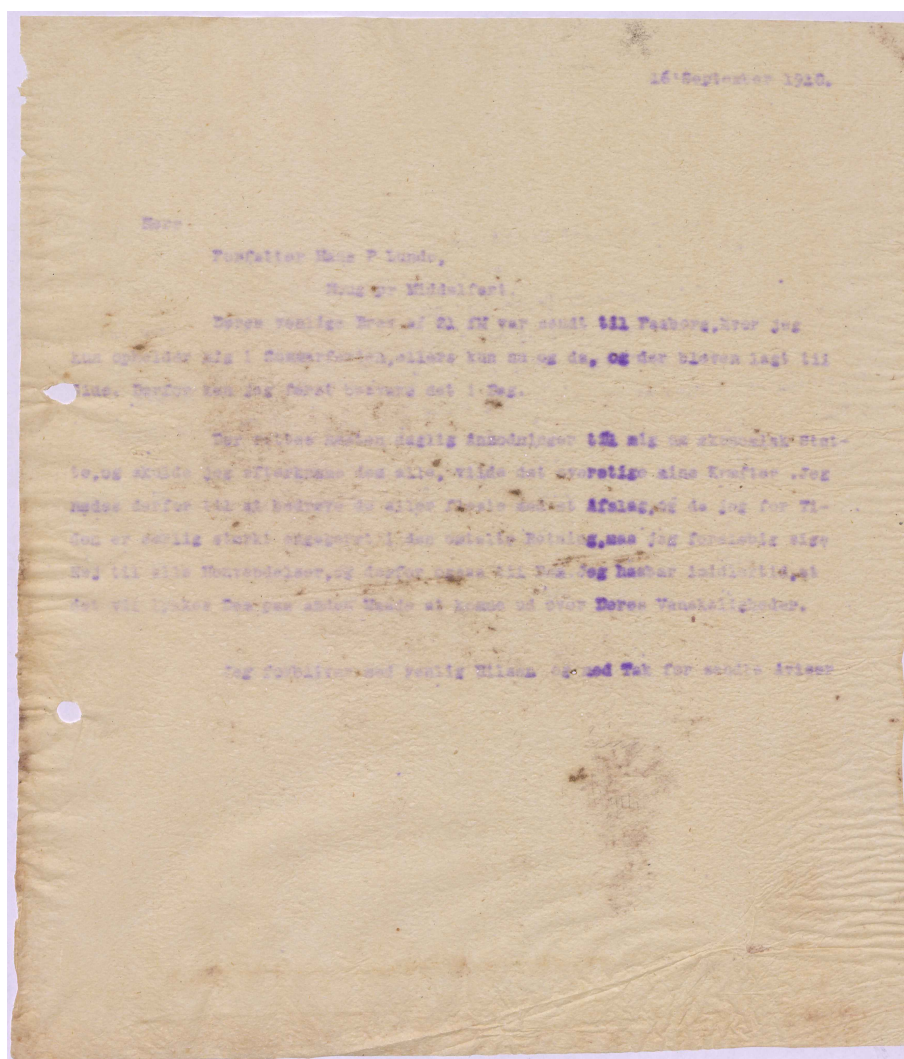 16 September 1910.
Herr
Forfatter Hans P Lunde,
pr Middelfart.
Deres venlige Brev af 21 fM var sendt til Faaborg, hvor jeg
kun opholder mig i Sommerferien, ellers kun nu og da, og der blev en lagt til
Side. Derfor kan jeg først besvare det i Dag.
Der rettes næsten daglig Anmodninger til mig om økonomisk Støt-
te, og skulde jeg efterkomme dem alle, vilde det overstige mine Kræfter. Jeg
nødes derfor til at bedrøve de allerfleste med et Afslag, og da jeg for Ti-
den er særlig stærkt engageret i den Retning, maa jeg foreløbig sige
Nej til alle Henvendelser, og derfor ogsaa til Dem. Jeg haaber imidlertid, at
det vil lykkes Dem paa anden Maade at komme ud over Deres Vanskeligheder.
Jeg forbliver med venlig Hilsen og med Tak for sendte Aviser